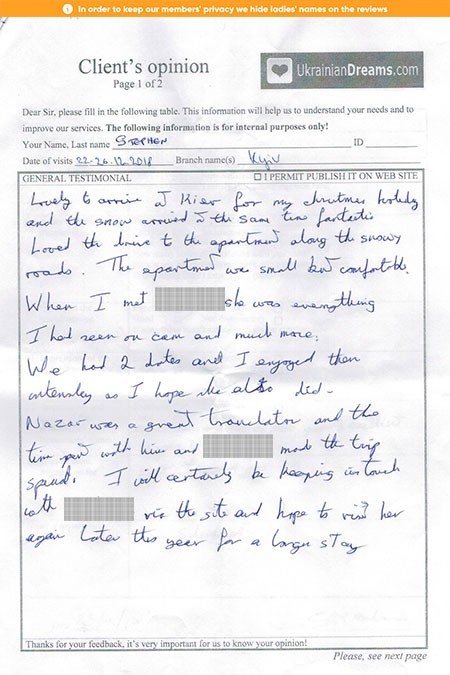 In order to keep our members' privacy we hide ladies' names on the reviews
Client's opinion
Page 1 of 2
UkrainianDreams.com
Dear Sir, please fill in the following table. This information will help us to understand your needs and to
improve our services. The following information is for internal purposes only!
Your Name, Last name STEPHEN ID
Date of visits 22-26.12.2018 Branch name(s) Kyiv
GENERAL TESTIMONIAL I PERMIT PUBLISH IT ON WEB SITE
Lovely to arrive in Kiev for my christmas holiday
and the snow arrived at the same time fantastic
Loved the drive to the apartment along the snowy
roads. The apartment was small but comfortable.
When I met she was everything
I had seen on cam and much more.
We had 2 dates and I enjoyed them
intensley as I hope she also did.
Nazar was a great translator and the
time spent with him and made the trip
special. I will certainly be keeping in touch
with via the site and hope to visit her
again later this year for a longer stay
Thanks for your feedback, it's very important for us to know your opinion!
Please, see next page